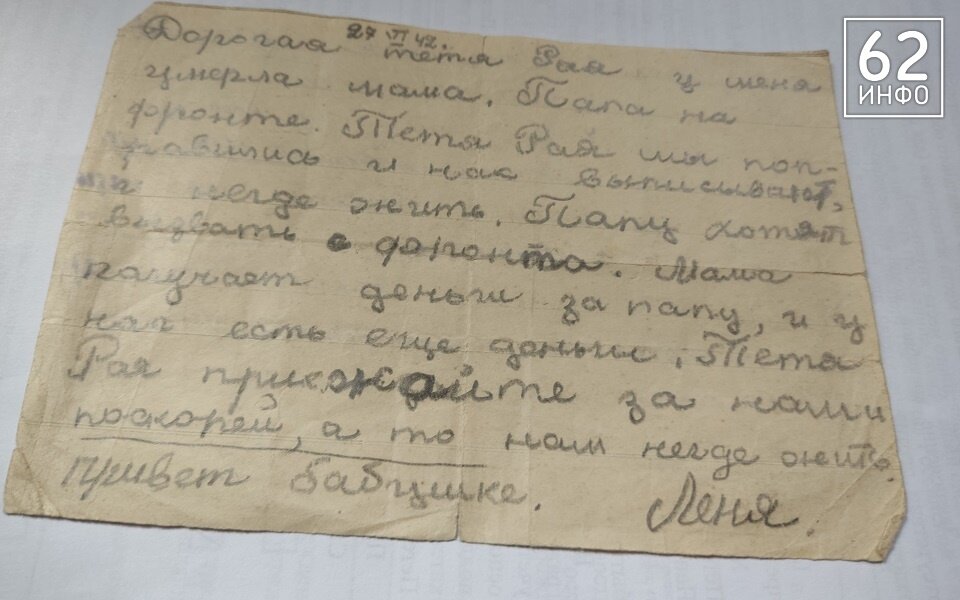 27 II 42.
Дорогая тетя Рая у меня
умерла мама. Папа на
фронте. Тетя Рая мы поп-
равились и нас выписывают,
и негде жить. Папу хотят
вызвать с фронта. Мама
получает деньги за папу, и у
нас есть еще деньги. Тетя
Рая приежайте за нами
поскорей, а то нам негде жить
привет бабушке. Леня.
62
ИНФО